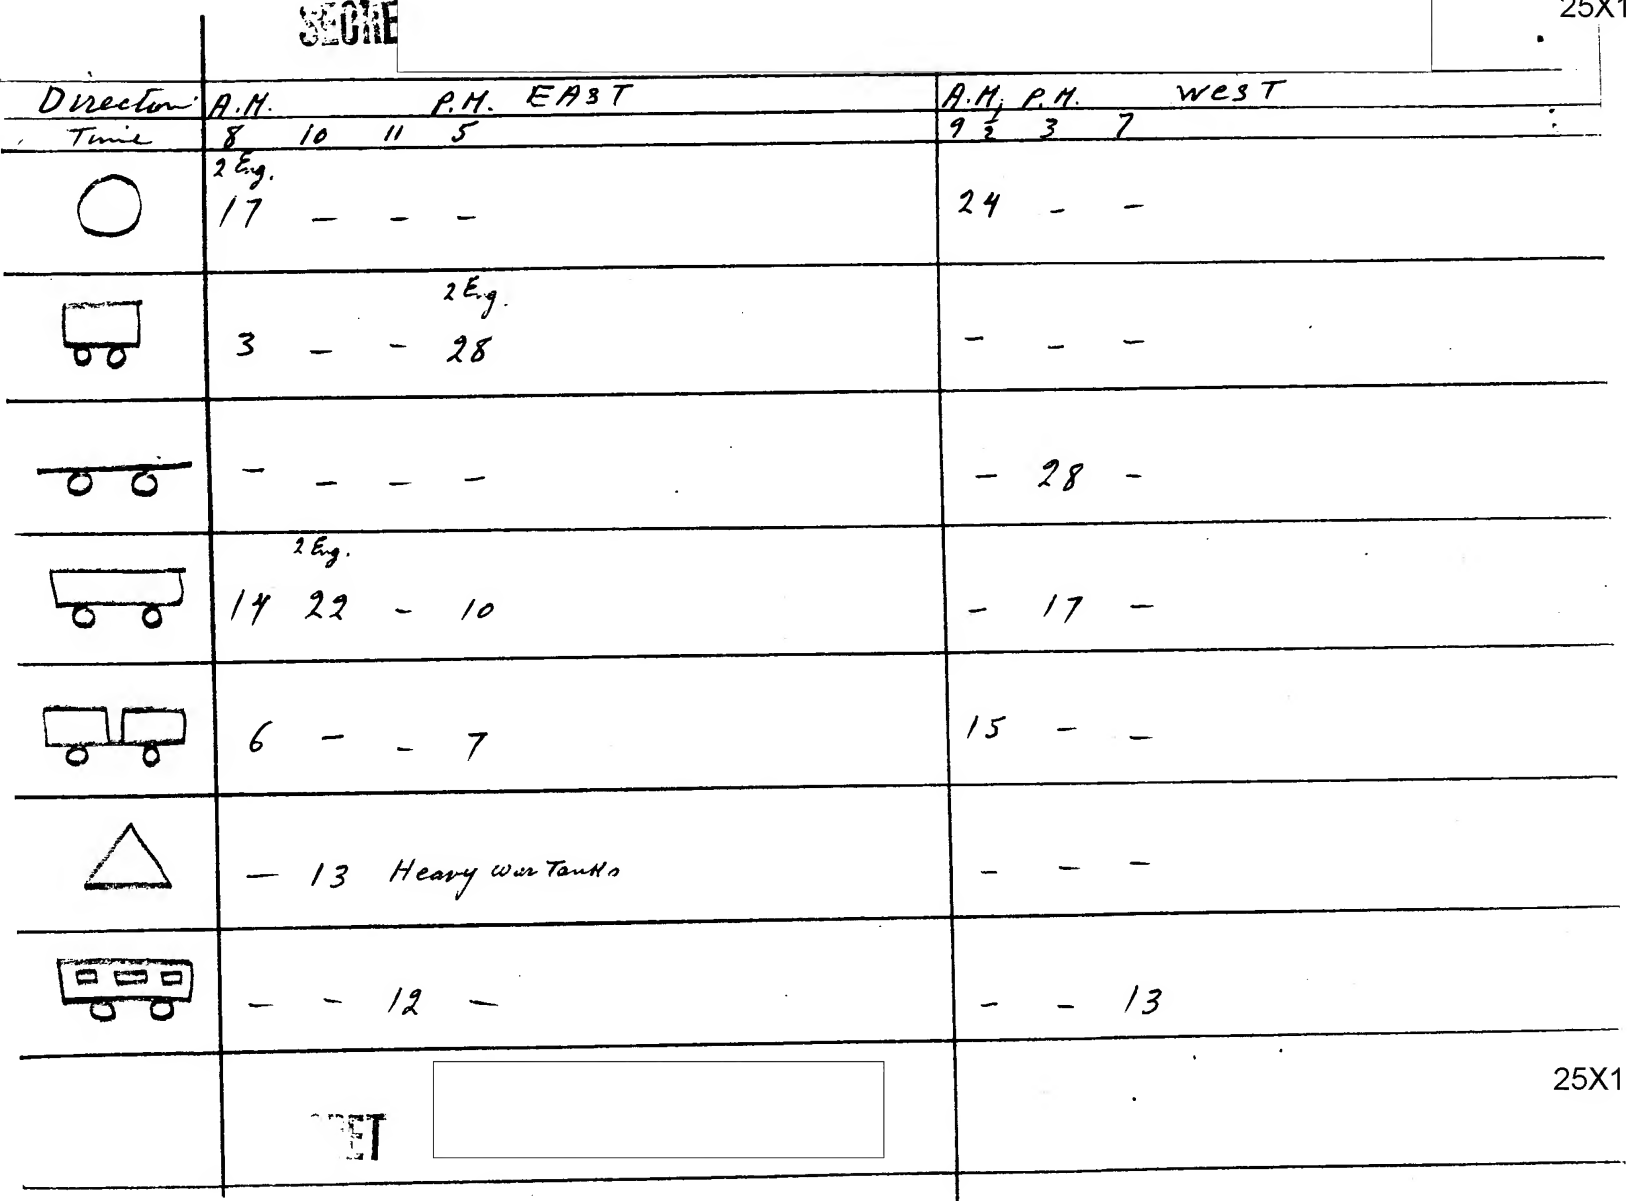 25X1
SECRE
Direction A.M. P.M. EAST A.M. P.M. WEST
Time 8 10 11 5 9 1/2 3 7
2 Eng.
17 - - - 24 - -
2 Eng.
3 - - 28 - - -
- - - - - 28 -
2 Eng.
14 22 - 10 - 17 -
6 - - 7 15 - -
- 13 Heavy war Tanks - - -
- - 12 - - - 13
25X1
RET